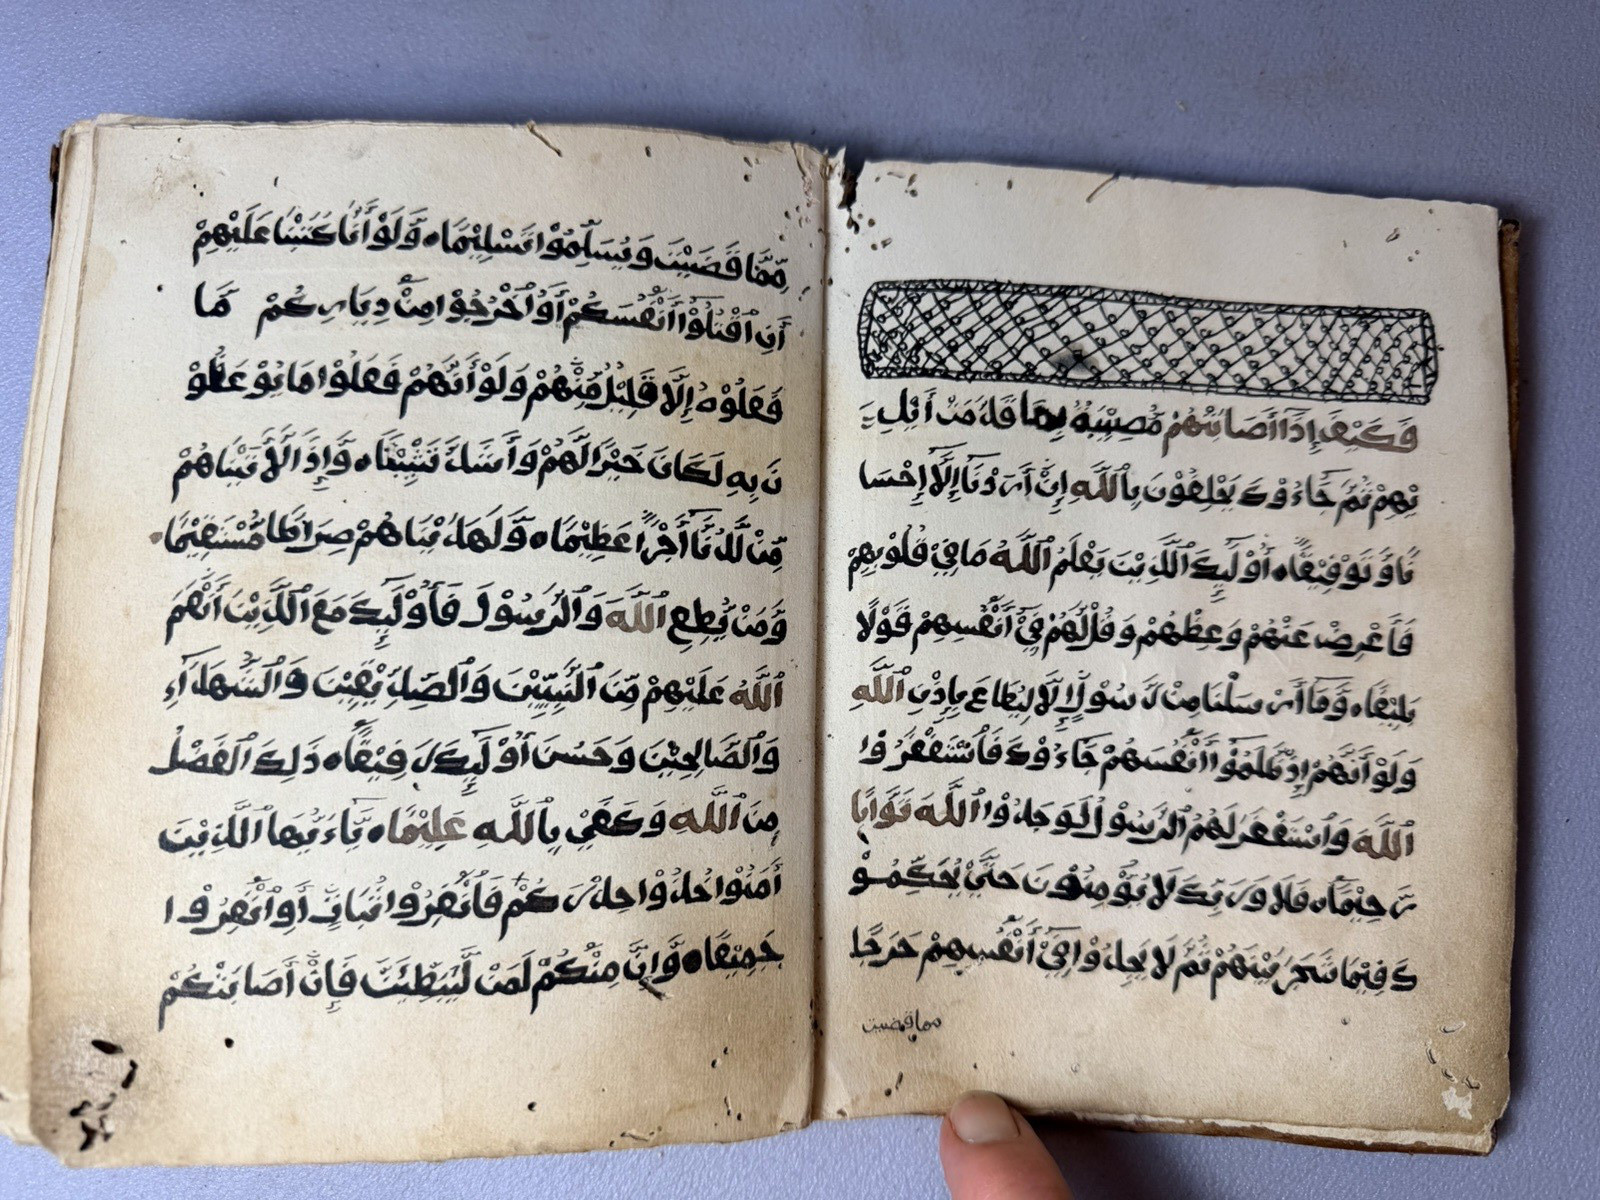 فَكَيْفَ إِذَا أَصَابَتْهُمْ مُّصِيْبَةٌ بِمَا قَدَّمَتْ أَيْدِ
يْهِمْ ثُمَّ جَاءُوْكَ يَحْلِفُوْنَ بِاللّٰهِ إِنْ أَرَدْنَا إِلَّا إِحْسَا
نًا وَّتَوْفِيْقًا، أُوْلَئِكَ الَّذِيْنَ يَعْلَمُ اللّٰهُ مَا فِيْ قُلُوْبِهِمْ
فَأَعْرِضْ عَنْهُمْ وَعِظْهُمْ وَقُلْ لَّهُمْ فِيْ أَنْفُسِهِمْ قَوْلًا
بَلِيْغًا، وَّمَا أَرْسَلْنَا مِنْ رَّسُوْلٍ إِلَّا لِيُطَاعَ بِإِذْنِ اللّٰهِ
وَلَوْ أَنَّهُمْ إِذْ ظَّلَمُوْا أَنْفُسَهُمْ جَاءُوْكَ فَاسْتَغْفَرُوْا
اللّٰهَ وَاسْتَغْفَرَ لَهُمُ الرَّسُوْلُ لَوَجَدُوْا اللّٰهَ تَوَّابًا
رَّحِيْمًا، فَلَا وَرَبِّكَ لَا يُؤْمِنُوْنَ حَتَّىْ يُحَكِّمُوْ
كَ فِيْمَا شَجَرَ بَيْنَهُمْ ثُمَّ لَا يَجِدُوْا فِيْ أَنْفُسِهِمْ حَرَجًا
مما قضيت
مِّمَّا قَضَيْتَ وَيُسَلِّمُوْا تَسْلِيْمًا، وَّلَوْ أَنَّا كَتَبْنَا عَلَيْهِمْ
أَنِ اقْتُلُوْا أَنْفُسَكُمْ أَوُ اخْرُجُوْا مِنْ دِيَارِكُمْ مَا
فَعَلُوْهُ إِلَّا قَلِيْلٌ مِّنْهُمْ وَلَوْ أَنَّهُمْ فَعَلُوْا مَا يُوْعَظُوْ
نَ بِهِ لَكَانَ خَيْرًا لَّهُمْ وَأَشَدَّ تَثْبِيْتًا، وَّإِذًا لَّأتَيْنَاهُمْ
مِّنْ لَّدُنَّا أَجْرًا عَظِيْمًا، وَّلَهَدَيْنَاهُمْ صِرَاطًا مُّسْتَقِيْمًا،
وَّمَنْ يُّطِعِ اللّٰهَ وَالرَّسُوْلَ فَأُوْلَئِكَ مَعَ الَّذِيْنَ أَنْعَمَ
اللّٰهُ عَلَيْهِمْ مِّنَ النَّبِيِّيْنَ وَالصِّدِّيْقِيْنَ وَالشُّهَدَآءِ
وَالصَّالِحِيْنَ وَحَسُنَ أُوْلَئِكَ رَفِيْقًا، ذَلِكَ الْفَضْلُ
مِنَ اللّٰهِ وَكَفَىْ بِاللّٰهِ عَلِيْمًا، يَّاءَيُّهَا الَّذِيْنَ
أمَنُوْا خُذُوْا حِذْرَكُمْ فَانْفِرُوْا ثُبَاتٍ أَوِ انْفِرُوْا
جَمِيْعًا، وَّإِنَّ مِنْكُمْ لَمَنْ لَّيُبَطِّئَنَّ فَإِنْ أَصَابَتْكُمْ